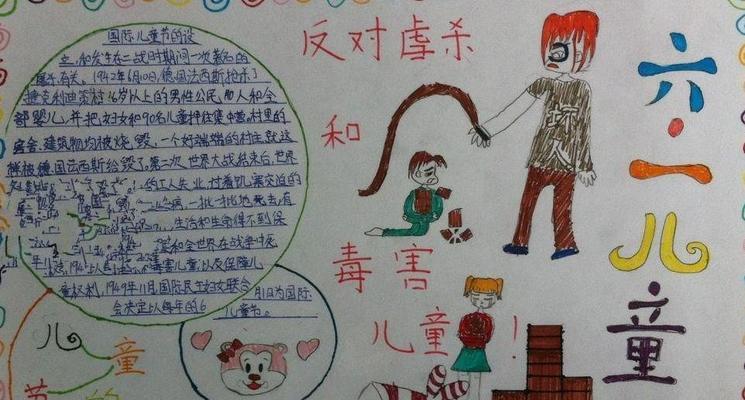 国际儿童节的设
立,和发生在二战时期间一次著名的
屠杀有关。1942年6月10日,德国法西斯枪杀了
捷克利迪策村16岁以上的男性公民,140人和全
部婴儿,并把妇女和90名儿童押往集中营,村里的
房舍、建筑物均被烧毁,一个好端端的村庄就这
样被德国法西斯给毁了。第二次世界大战结束后,世界
约工人失业,过着饥寒交迫的
病,一批批地死去,有
生活和生命得不到保
和全世界在战争中死
毒害儿童,以及保障儿
童权利,1949年11月国际民主妇女联合
会决定以每年的6
月1日为国际
儿童节。
反对虐杀
和
毒害
儿童!
坏人
六·一儿童
儿童
节的